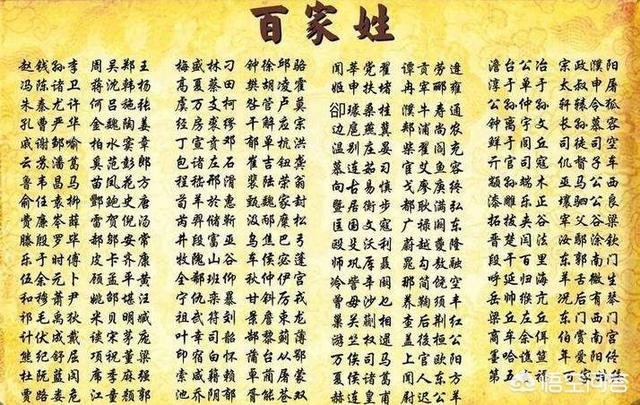 百家姓
赵钱孙李 周吴郑王
冯陈褚卫 蒋沈韩杨
朱秦尤许 何吕施张
孔曹严华 金魏陶姜
戚谢邹喻 柏水窦章
云苏潘葛 奚范彭郎
鲁韦昌马 苗凤花方
俞任袁柳 酆鲍史唐
费廉岑薛 雷贺倪汤
滕殷罗毕 郝邬安常
乐于时傅 皮卞齐康
伍余元卜 顾孟平黄
和穆萧尹 姚邵湛汪
祁毛禹狄 米贝明臧
计伏成戴 谈宋茅庞
熊纪舒屈 项祝董梁
杜阮蓝闵 席季麻强
贾路娄危 江童颜郭
梅盛林刁 钟徐邱骆
高夏蔡田 樊胡凌霍
虞万支柯 昝管卢莫
经房裘缪 干解应宗
丁宣贲邓 郁单杭洪
包诸左石 崔吉钮龚
程嵇邢滑 裴陆荣翁
荀羊於惠 甄曲家封
芮羿储靳 汲邴糜松
井段富巫 乌焦巴弓
牧隗山谷 车侯宓蓬
全郗班仰 秋仲伊宫
宁仇栾暴 甘钭厉戎
祖武符刘 景詹束龙
叶幸司韶 郜黎蓟薄
印宿白怀 蒲邰从鄂
索咸籍赖 卓蔺屠蒙
池乔阴郁 胥能苍双
闻莘党翟 谭贡劳逄
姬申扶堵 冉宰郦雍
郤璩桑桂 濮牛寿通
边扈燕冀 郏浦尚农
温别庄晏 柴瞿阎充
慕连茹习 宦艾鱼容
向古易慎 戈廖庾终
暨居衡步 都耿满弘
匡国文寇 广禄阙东
殴殳沃利 蔚越夔隆
师巩厍聂 晁勾敖融
冷訾辛阚 那简饶空
曾毋沙乜 养鞠须丰
巢关蒯相 查后荆红
游竺权逯 盖益桓公
万俟司马 上官欧阳
夏侯诸葛 闻人东方
赫连皇甫 尉迟公羊
澹台公冶 宗政濮阳
淳于单于 太叔申屠
公孙仲孙 轩辕令狐
钟离宇文 长孙慕容
鲜于闾丘 司徒司空
亓官司寇 仉督子车
颛孙端木 巫马公西
漆雕乐正 壤驷公良
拓拔夹谷 宰父谷梁
晋楚闫法 汝鄢涂钦
段干百里 东郭南门
呼延归海 羊舌微生
岳帅缑亢 况后有琴
梁丘左丘 东门西门
商牟佘佴 伯赏南宫
墨哈谯笪 年爱阳佟
第五言福 百家姓终
悟空问答